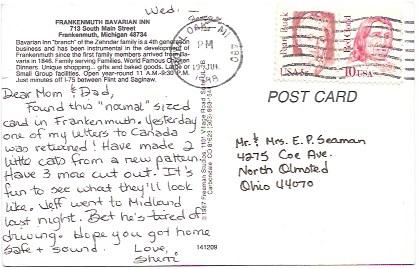 Wed.
FRANKENMUTH BAVARIAN INN
713 South Main Street
Frankenmuth, Michigan 48734
Bavarian Inn "branch" of the Zehnder family is a 4th generation
business and has been instrumental in the development of
Frankenmuth since the first family members arrived from Ba-
varia in 1846. Family Serving Families. World Famous Chicken
Dinners. Unique shopping... gifts and baked goods. Large or
Small Group facilities. Open year-round 11 A.M.-9:30 P.M.
Just minutes off I-75 between Flint and Saginaw.
Dear Mom & Dad,
Found this "normal" sized
card in Frankenmuth. Yesterday
one of my letters to Canada
was returned! Have made 2
little cats from a new pattern.
Have 3 more cut out. It's
fun to see what they'll look
like. Jeff went to Midland
last night. Bet he's tired of
driving. Hope you got home
safe & sound. Love,
Sherri
141209
©1987 Freeman Studios
PM
MI
USA 5c
10 USA
Red Cloud
POST CARD
Mr. & Mrs. E.P. Seaman
4275 Coe Ave.
North Olmsted
Ohio 44070